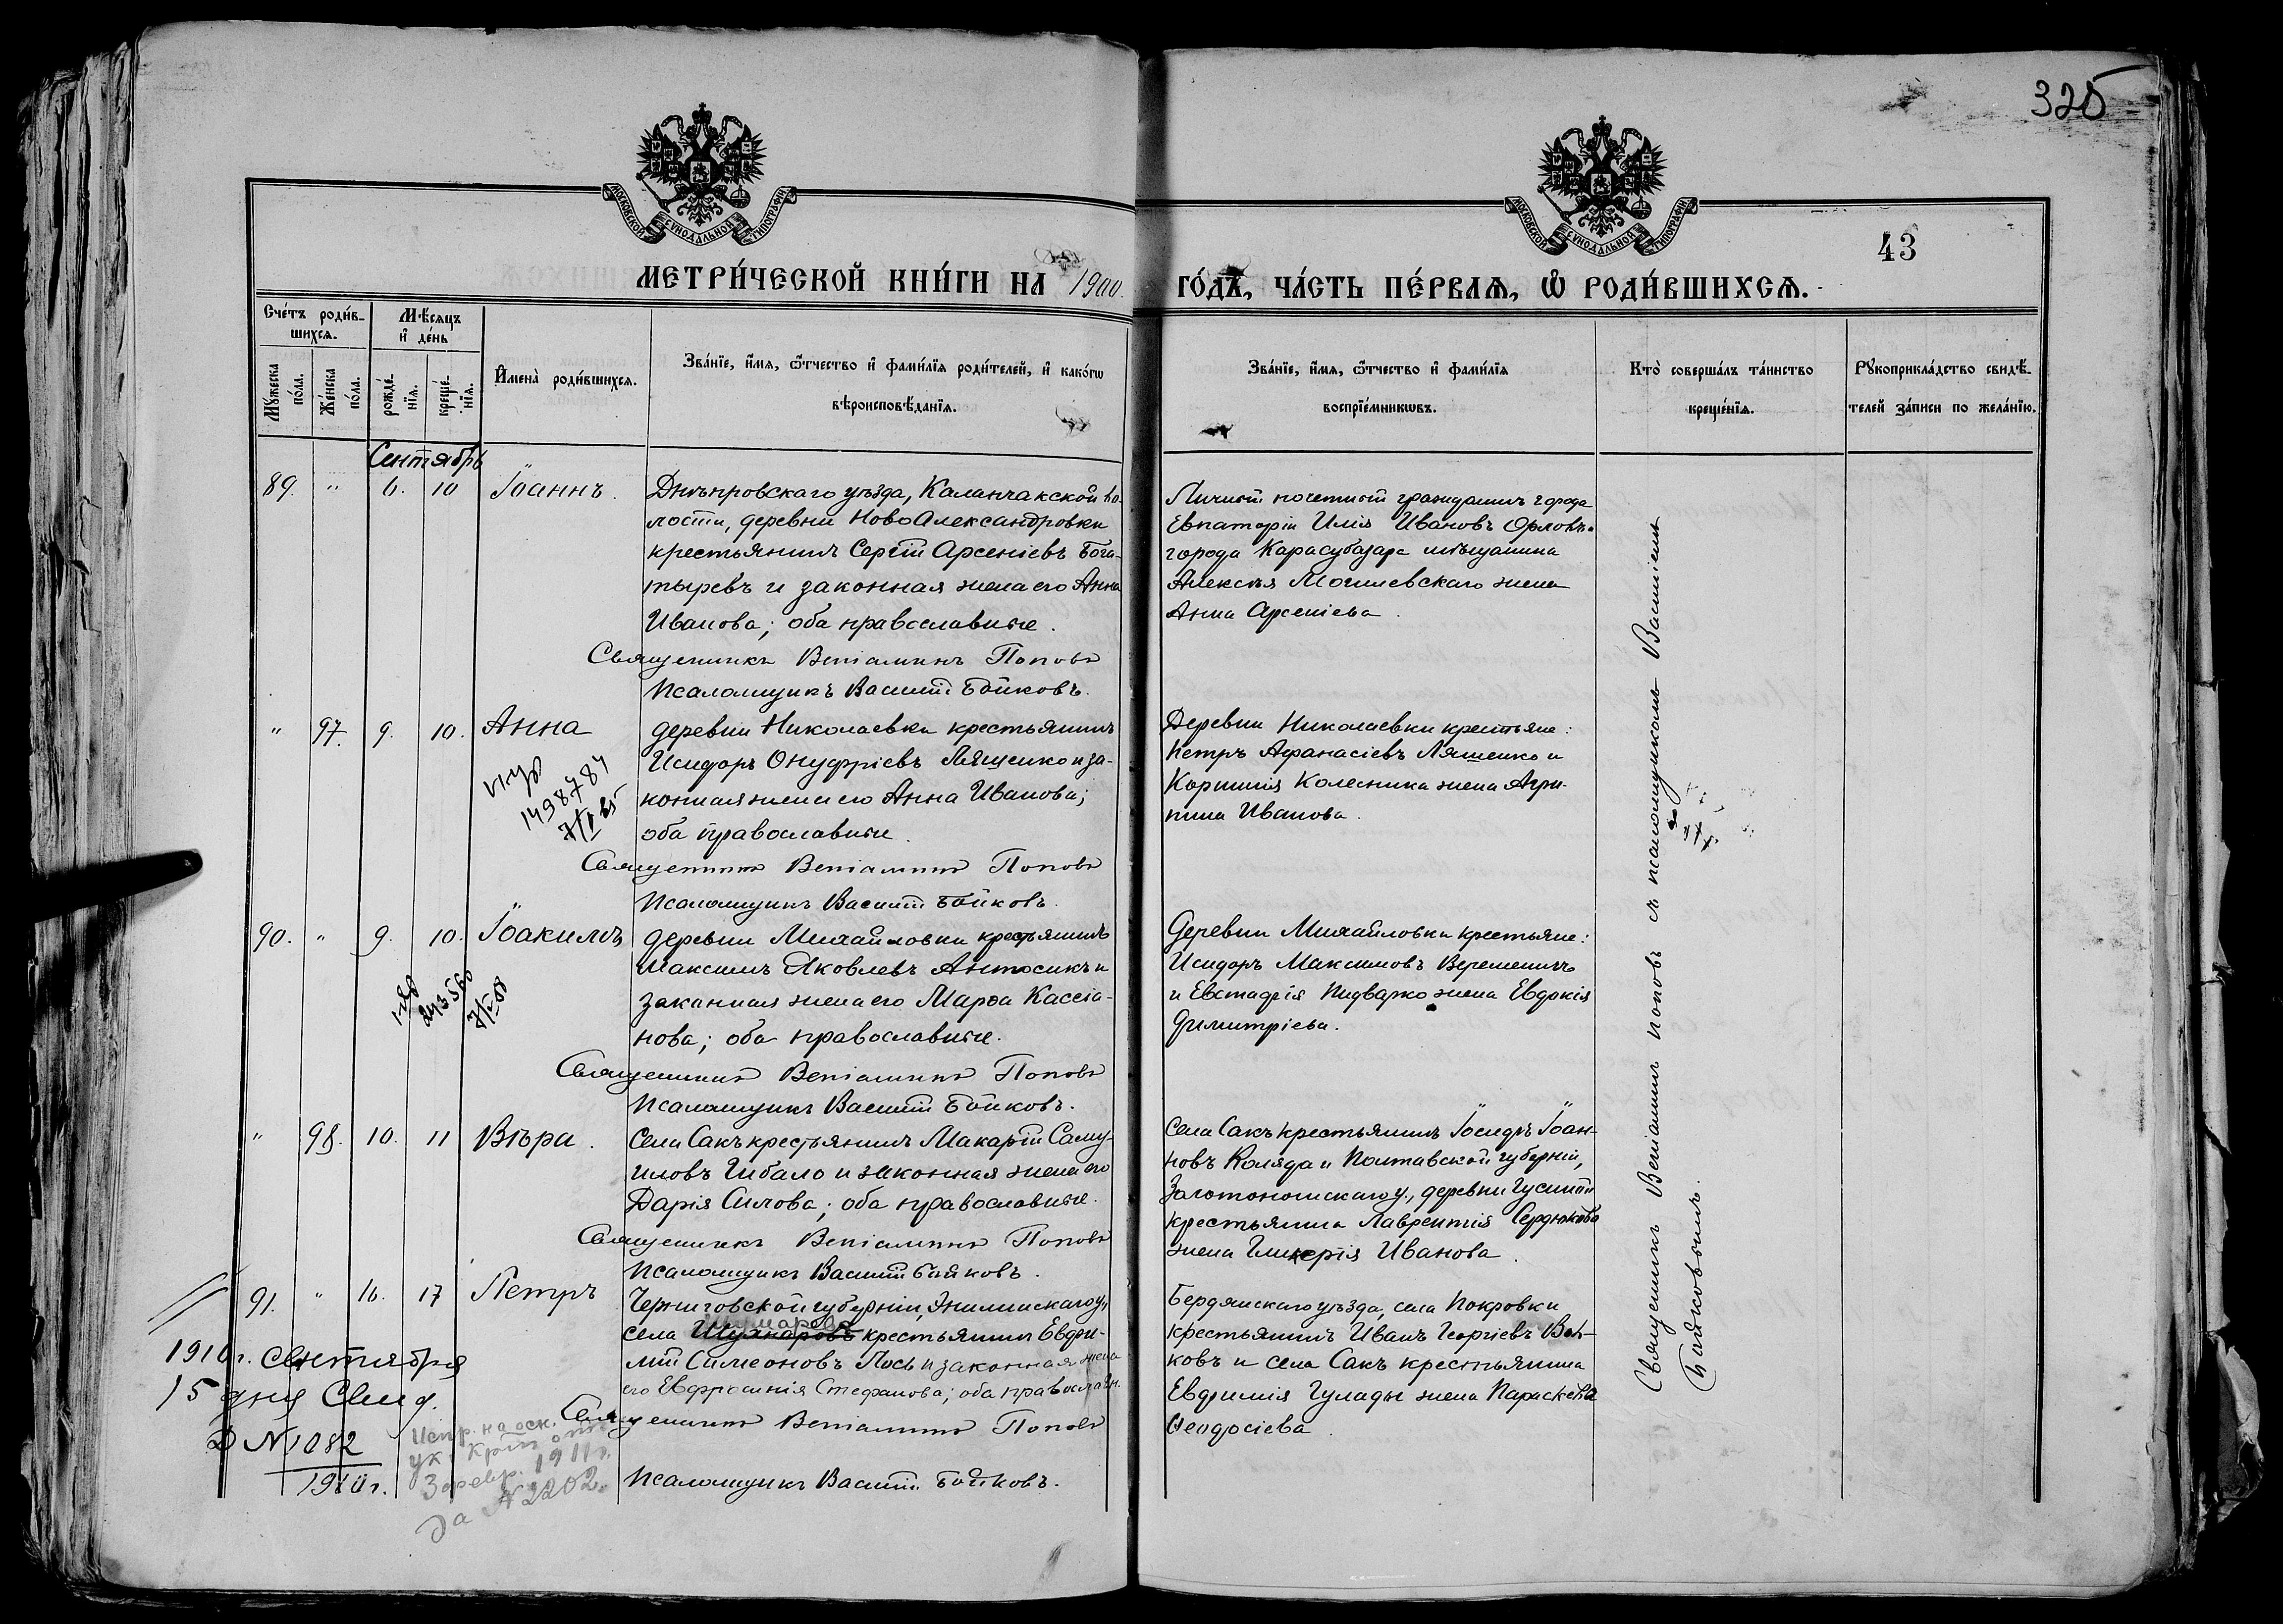 325
43
МОСКОВСКОЙ СѴНОДАЛЬНОЙ ТИПОГРАФІИ
МОСКОВСКОЙ СѴНОДАЛЬНОЙ ТИПОГРАФІИ
МЕТРИ́ЧЕСКОЙ КНИ́ГИ НА 1900 ГО́ДЪ, ЧА́СТЬ ПЕ́РВАЯ, Ѽ РОДИ́ВШИХСЯ.
Сче́тъ роди́в-
шихся.
Мѣ́сяцъ
и҆ де́нь
Му́жеска по́ла.
Же́нска по́ла.
рожде́-
нїя.
креще́-
нїя.
И҆мена̀ роди́вшихся.
Зва́нїе, и҆́мя, ѻ҆́тчество и҆ фами́лїя роди́телей, и҆ како́гѡ
вѣроисповѣ́данїя.
Зва́нїе, и҆́мя, ѻ҆́тчество и҆ фами́лїя
воспрїе́мникѡвъ.
Кто̀ соверша́лъ та́инство
креще́нїя.
Рꙋкоприкла́дство свидѣ́-
телей за́писи по жела́нїю.
Сентябрь
89. " 6. 10 Іоаннъ.
Днѣпровскаго уѣзда, Каланчакской во-
лости, деревни НовоАлександровки
крестьянинъ Сергій Арсеніевъ Бога-
тыревъ и законная жена его Анна
Иванова; оба православные.
Священникъ Веніаминъ Поповъ
Псаломщикъ Василій Бойковъ.
Личный почетный гражданинъ города
Евпаторіи Илія Ивановъ Орловъ.
города Карасубазара мѣщанина
Алексѣя Могилевскаго жена
Анна Арсеніева.
" 97. 9. 10. Анна
деревни Николаевки крестьянинъ
Исидоръ Онуфріевъ Лященко и за-
конная жена его Анна Иванова;
оба православные.
Священникъ Веніаминъ Поповъ
Псаломщикъ Василій Бойковъ.
1498784
Деревни Николаевки крестьяне:
Петръ Афанасіевъ Ляшенко и
Корнилія Колесника жена Агри-
пина Иванова.
90. " 9. 10. Іоакимъ
деревни Михайловки крестьянинъ
Максимъ Яковлевъ Антосикъ и
законная жена его Марѳа Кассіа-
нова; оба православные.
Священникъ Веніаминъ Поповъ
Псаломщикъ Василій Бойковъ.
Деревни Михайловки крестьяне:
Исидоръ Максимовъ Веремеичъ
и Евстафія Пидварко жена Евдокія
Димитріева.
" 98. 10. 11 Вѣра.
Села Сакъ крестьянинъ Макарій Саму-
иловъ Шбало и законная жена его
Дарія Силова; оба православные.
Священникъ Веніаминъ Поповъ
Псаломщикъ Василій Бойковъ.
Села Сакъ крестьянинъ Іосифъ Іоан-
новъ Коляда и Полтавской губерніи,
Золотоношскаго у., деревни Гусиной
крестьянина Лаврентія Сердюкова
жена Гликерія Иванова.
91. " 16. 17 Петръ
Черниговской губерніи, у.,
села крестьянинъ Евфи-
мій Симеоновъ Лось и законная жена
его Евфросинія Стефанова; оба православн.
Священникъ Веніаминъ Поповъ
Псаломщикъ Василій Бойковъ.
Бердянскаго уѣзда, села Покровки
крестьянинъ Иванъ Георгіевъ Вол-
ковъ и села Сакъ крестьянина
Евфимія Гулады жена Параскева
Ѳеодосіева.
1910 г. Сентября
15 дня Свид.
№ 1082
1910 г.
Испр. на осн.
ук.
1911 г.
за № 2202.
Священникъ Веніаминъ Поповъ съ псаломщикомъ Василіемъ
Бойковымъ.